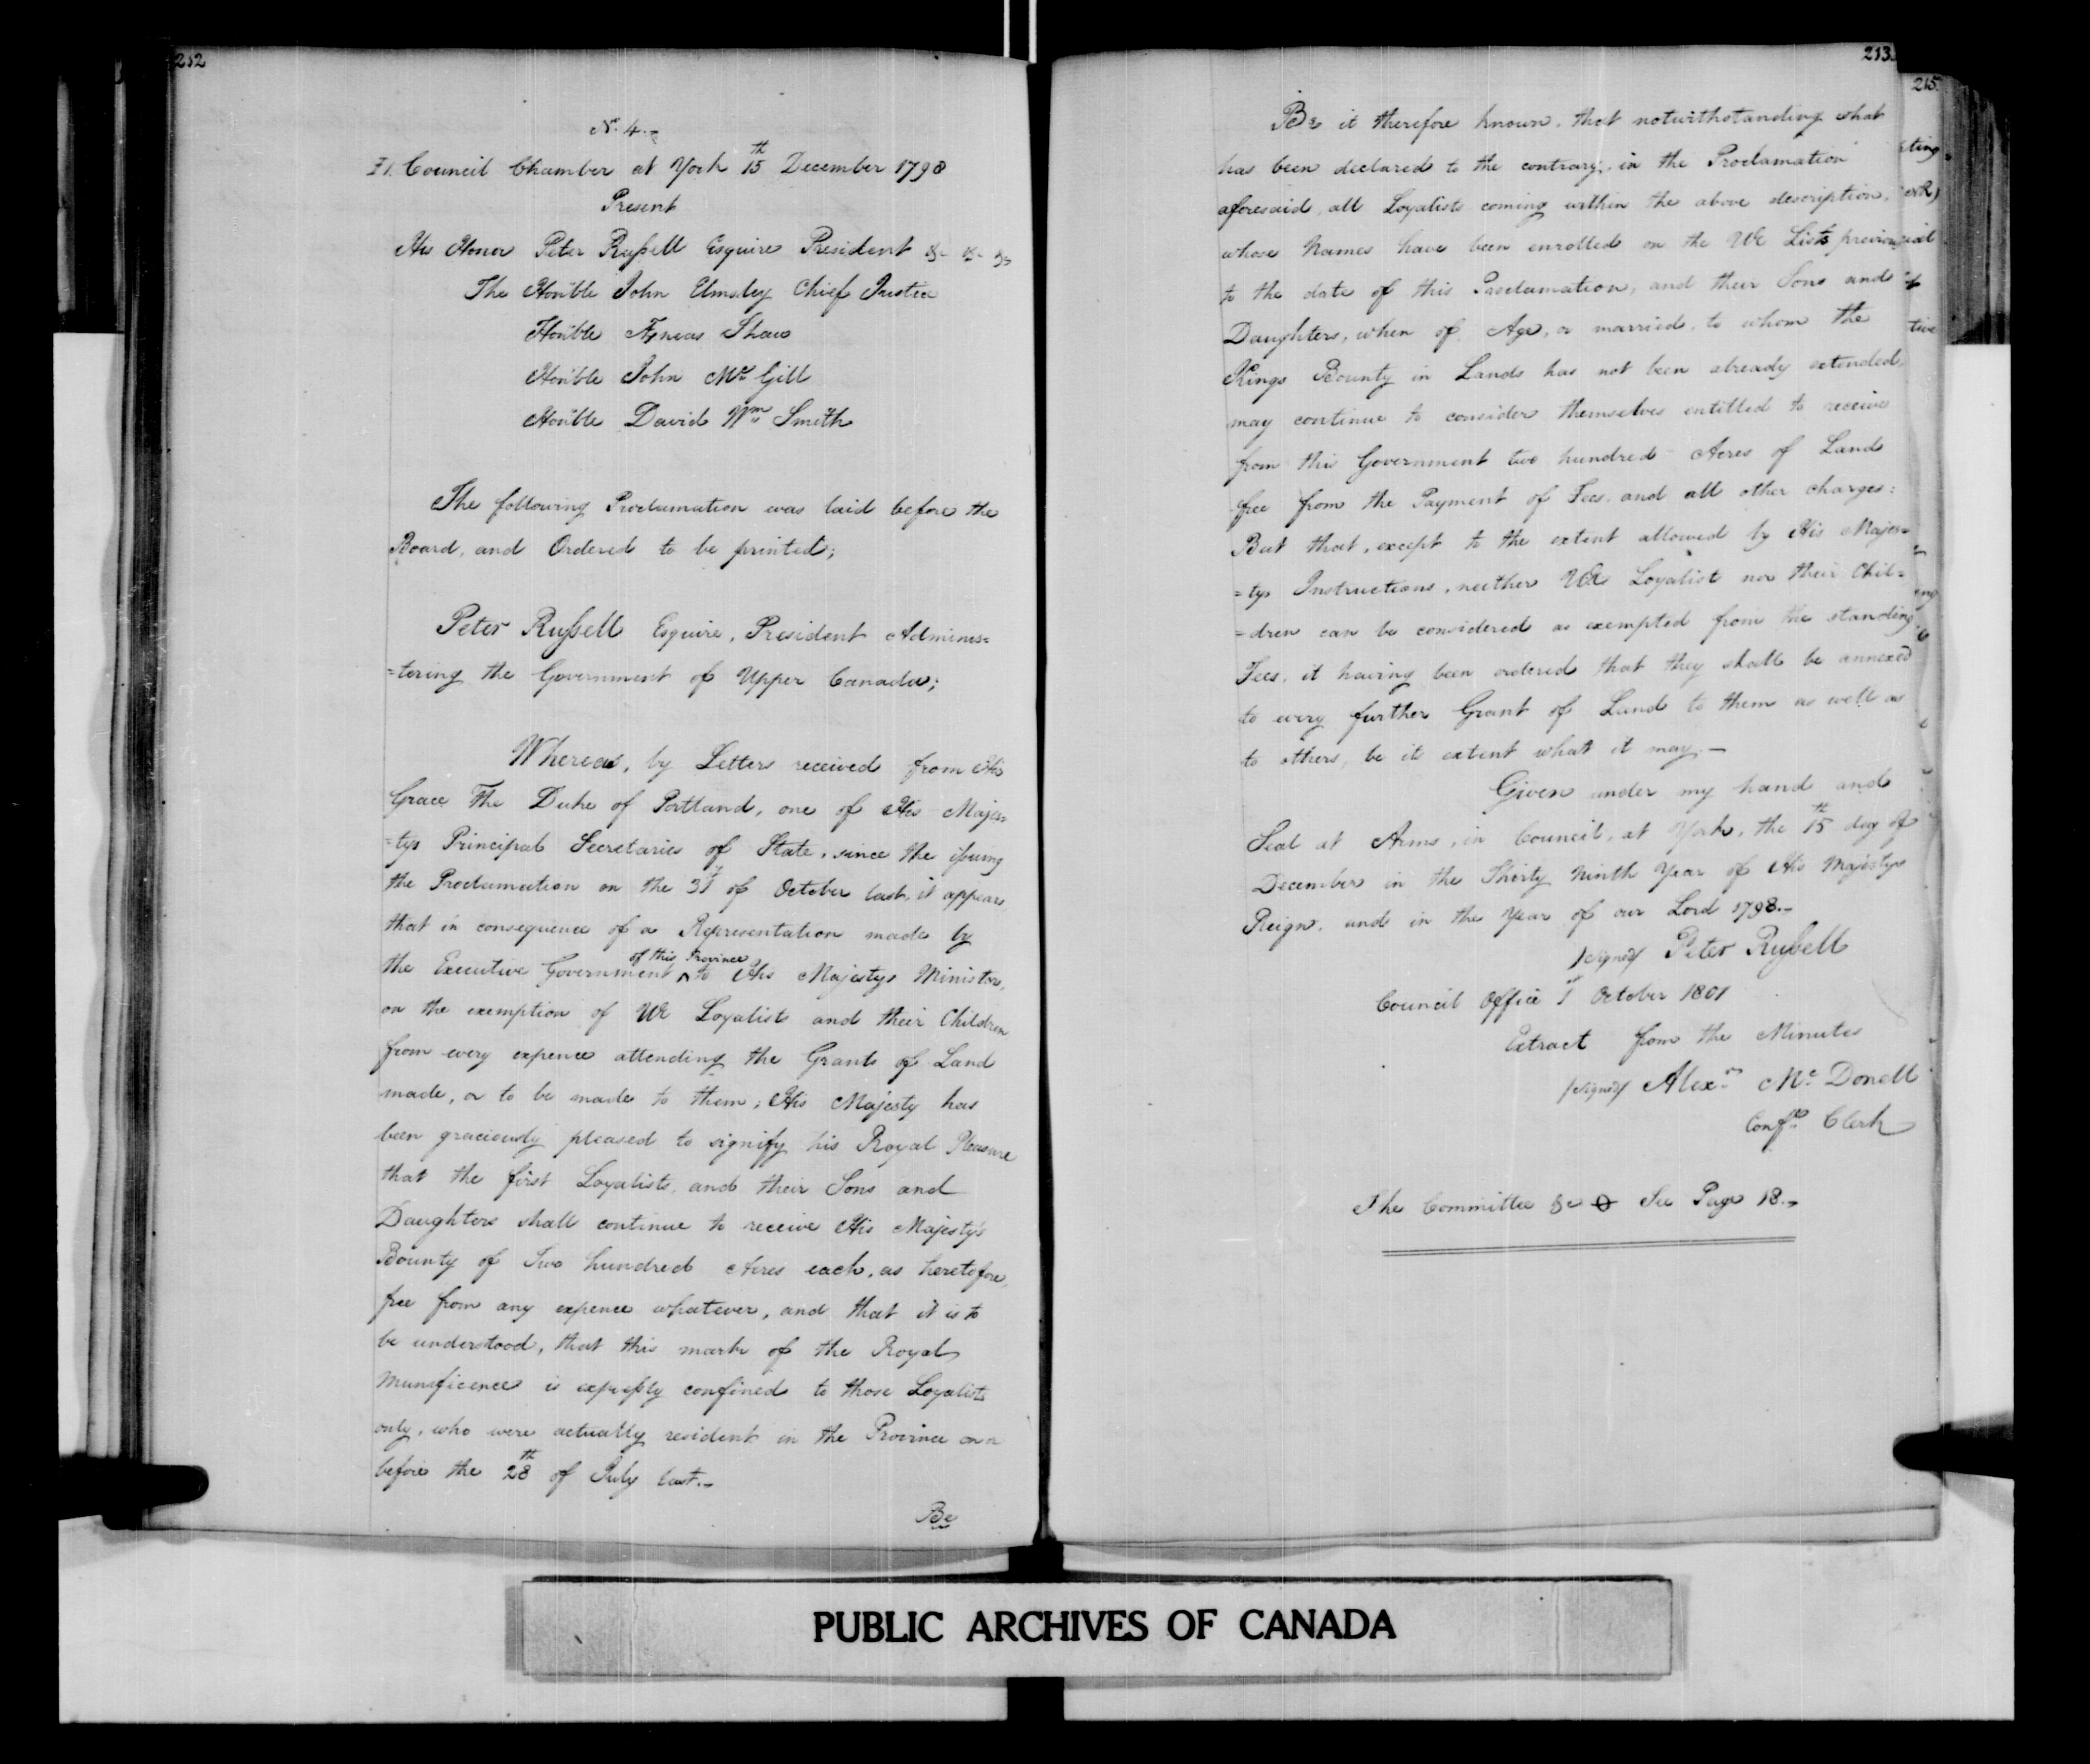 212
No. 4.
Council Chamber at York 15th December 1798
Present
His Honor Peter Russell Esquire President &c &c &c
The Honble John Elmsley Chief Justice
Honble Æneas Shaw
Honble John McGill
Honble David Wm Smith
The following Proclamation was laid before the
Board, and Ordered to be printed;
Peter Russell Esquire, President Adminis=
=tering the Government of Upper Canada;
Whereas, by Letters received from His
Grace The Duke of Portland, one of His Majes=
=tys Principal Secretaries of State, since the issuing
the Proclamation on the 31st of October last, it appears
that in consequence of a Representation made by
the Executive Government ^of this Province to His Majestys Ministers,
on the exemption of UE Loyalists and their Children
from every expence attending the Grants of Land
made, or to be made to them; His Majesty has
been graciously pleased to signify his Royal Pleasure
that the first Loyalists, and their Sons and
Daughters shall continue to receive His Majesty's
Bounty of Two hundred Acres each, as heretofore,
free from any expence whatever, and that it is to
be understood, that this mark of the Royal
Munificence is expressly confined to those Loyalists
only, who were actually resident in the Province on or
before the 28th of July last.
Be
213
Be it therefore known, that notwithstanding what
has been declared to the contrary, in the Proclamation
aforesaid, all Loyalists coming within the above description,
whose Names have been enrolled on the UE Lists previous
to the date of this Proclamation, and their Sons and
Daughters, when of Age, or married, to whom the
Kings Bounty in Lands has not been already extended,
may continue to consider themselves entitled to receive
from this Government two hundred Acres of Land
free from the Payment of Fees, and all other charges:
But that, except to the extent allowed by His Majes=
=tys Instructions, neither UE Loyalist nor their Chil=
=dren can be considered as exempted from the standing
Fees, it having been ordered that they shall be annexed
to every further Grant of Land to them as well as
to others, be it extent what it may.—
Given under my hand and
Seal at Arms, in Council, at York, the 15th day of
December in the Thirty Ninth Year of His Majestys
Reign, and in the Year of our Lord 1798.
/signed/ Peter Russell
Council Office 1st October 1801
Extract from the Minutes
/signed/ Alexr McDonell
Confl Clerk
The Committee &c See Page 18.
215
PUBLIC ARCHIVES OF CANADA